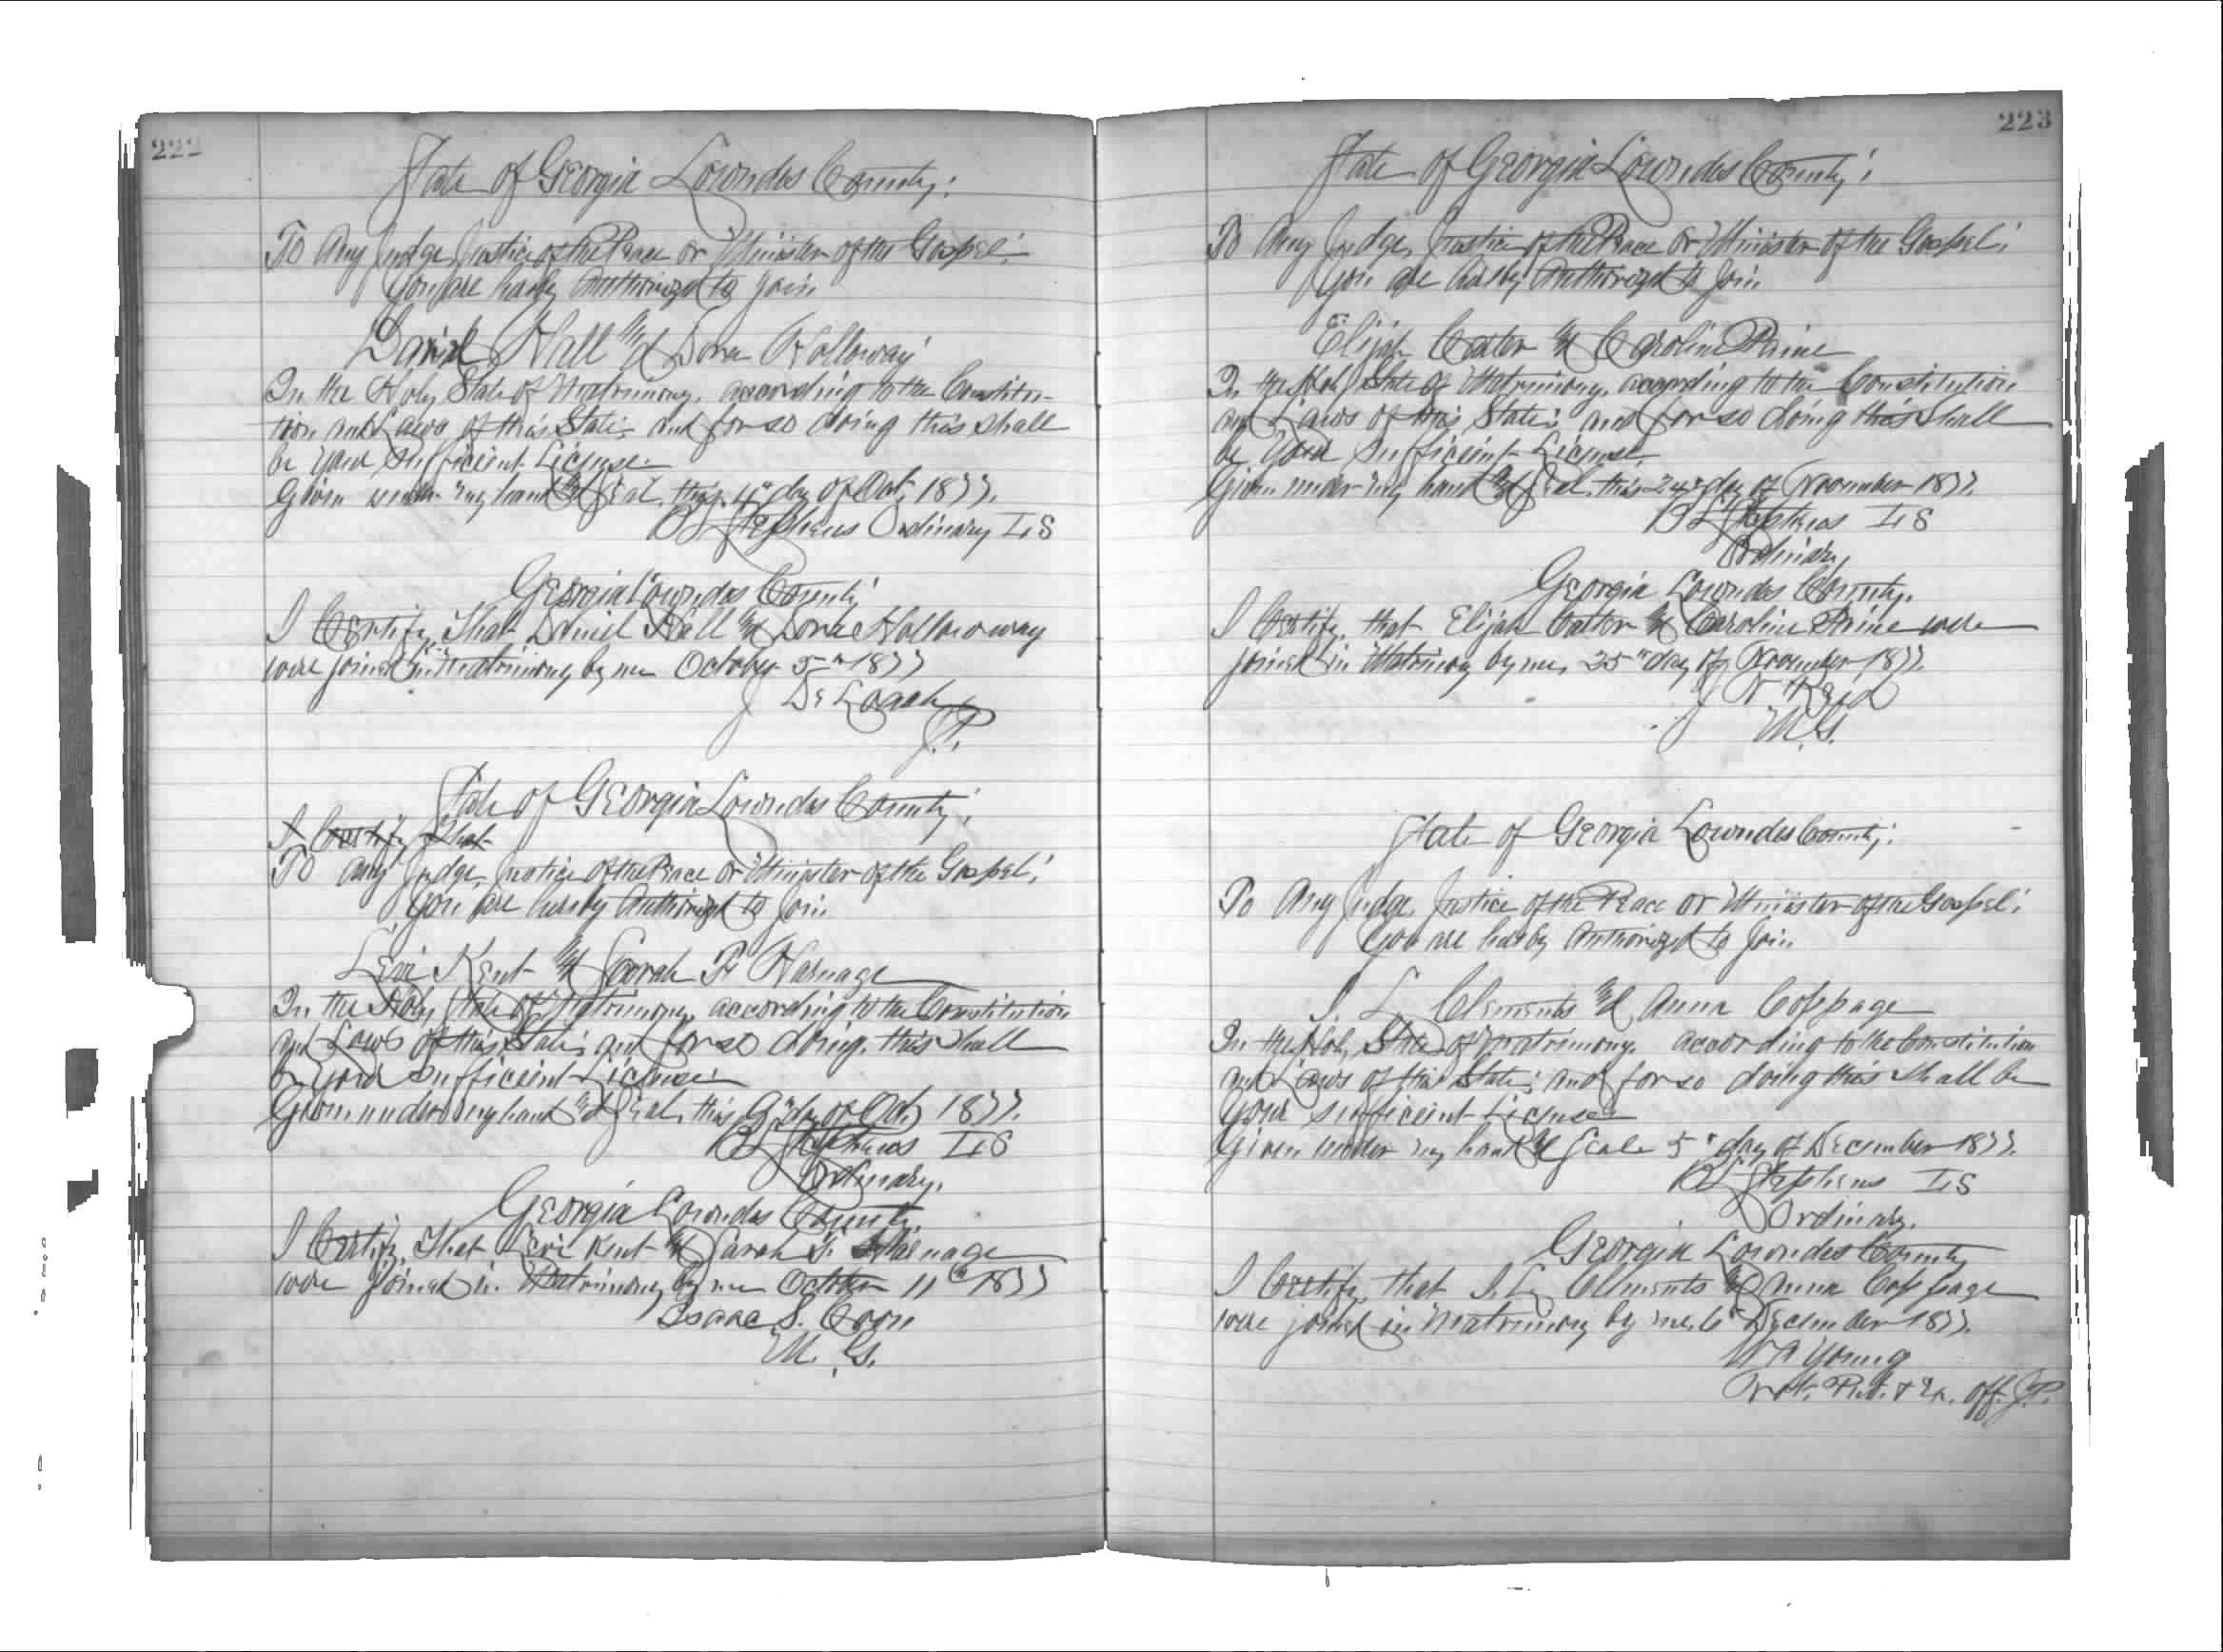 222
State of Georgia Lowndes County;
To Any Judge, Justice of the Peace or Minister of the Gospel;
You are hereby Authorized to join
David Hall and Dora Holloway
In the Holy State of Matrimony, according to the Constitu-
tion and Laws of this State; and for so doing this shall
be your sufficient License
Given under my hand and Seal, this 4" day of Oct, 1877.
B L Stephens Ordinary L S
Georgia Lowndes County
I Certify, That David Hall and Dora Holloway
were joined in Matrimony by me October 5" 1877
J De Loach
J.P.
State of Georgia Lowndes County;
I Certify That
To any Judge, Justice of the Peace or Minister of the Gospel;
You are hereby Authorized to Join
Levi Kent and Sarah Harnage
In the Holy State of Matrimony, according to the Constitution
and Laws of this State; and for so doing, this Shall
be your sufficient License
Given under my hand and Seal, this 9" day of Oct, 1877.
B L Stephens L S
Ordinary.
Georgia Lowndes County.
I Certify, That Levi Kent and Sarah Harnage
were joined in Matrimony by me October 11" 1877
Isaac S. Coon
M. G.
223
State of Georgia Lowndes County;
To Any Judge, Justice of the Peace or Minister of the Gospel;
You are hereby Authorized to Join
Elijah and Caroline Paine
In the Holy State of Matrimony, according to the Constitution
and Laws of this State; and for so doing this Shall
be your sufficient License
Given under my hand and Seal, this 24" day of November 1877.
B L Stephens L S
Ordinary
Georgia Lowndes County.
I Certify, that Elijah and Caroline Paine were
joined in Matrimony by me, 25" day of November 1877.
J N Reid
M.G.
State of Georgia Lowndes County;
To Any Judge, Justice of the Peace or Minister of the Gospel;
You are hereby Authorized to Join
I L Clements and Anna Coppage
In the Holy State of Matrimony. according to the Constitution
and Laws of this State; and for so doing this Shall be
your sufficient License
Given under my hand and Seale 5" day of December 1877.
B L Stephens L S
Ordinary.
Georgia Lowndes County
I Certify, that I. L. Clements and Anna Coppage
were joined in Matrimony by me, 6" December 1877.
W A Young
Not. Pub. & Ex. off. J.P.